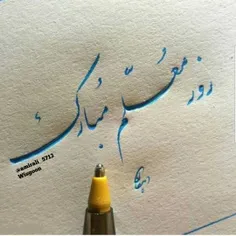 روز معلّم مُبارک
@amirali_5712
Wisgoon